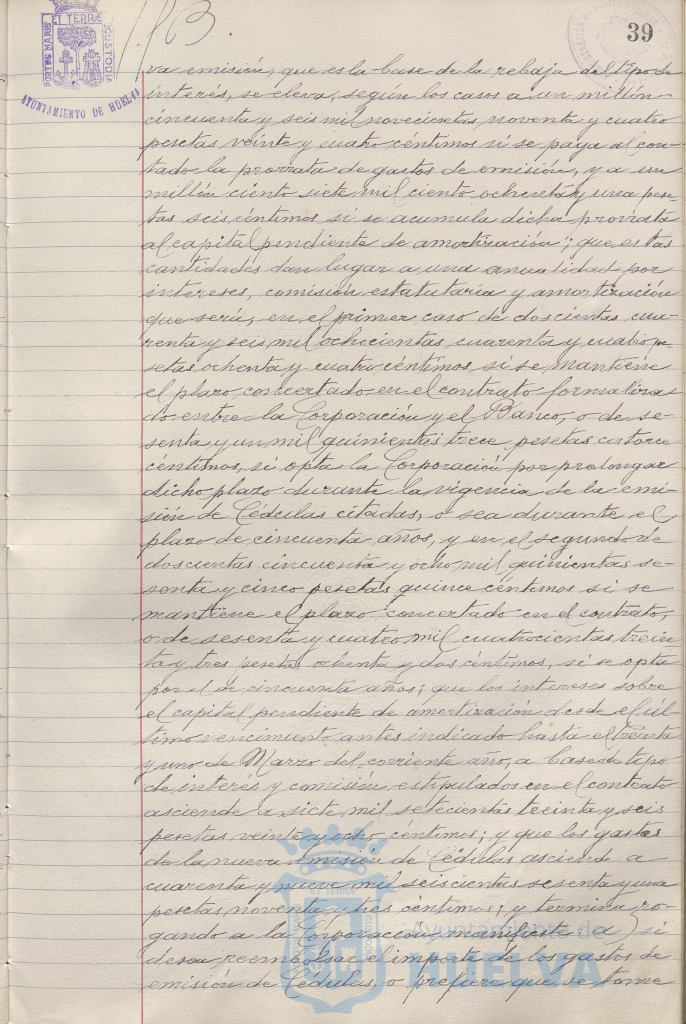 PORTUS MARIS
ET TERRÆ
CUSTODIA
AYUNTAMIENTO DE HUELVA
39
va emisión, que es la base de la rebaja del tipo de
interés, se eleva, según los casos a un millón
cincuenta y seis mil novecientas noventa y cuatro
pesetas veinte y cuatro céntimos si se paga al con-
tado la prorrata de gastos de emisión, y a un
millón ciento siete mil ciento ochenta y una pese-
tas seis céntimos si se acumula dicha prorrata
al capital pendiente de amortización; que estas
cantidades dan lugar a una anualidad por
intereses, comisión estatutaria y amortización
que sería, en el primer caso de doscientas cua-
renta y seis mil ochocientas cuarenta y cuatro pe-
setas ochenta y cuatro céntimos, si se mantiene
el plazo concertado en el contrato formaliza-
do entre la Corporación y el Banco, o de se-
senta y un mil quinientas trece pesetas catorce
céntimos, si opta la Corporación por prolongar
dicho plazo durante la vigencia de la emi-
sión de Cédulas citadas, o sea durante el
plazo de cincuenta años, y en el segundo de
doscientas cincuenta y ocho mil quinientas se-
senta y cinco pesetas quince céntimos si se
mantiene el plazo concertado en el contrato,
o de sesenta y cuatro mil cuatrocientas trein-
ta y tres pesetas ochenta y dos céntimos, si se opta
por el de cincuenta años; que los intereses sobre
el capital pendiente de amortización desde el úl-
timo vencimiento antes indicado hasta el treinta
y uno de Marzo del corriente año, a base de tipo
de interés y comisión estipulados en el contrato
asciende a siete mil setecientas treinta y seis
pesetas veinte y ocho céntimos; y que los gastos
de la nueva emisión de Cédulas asciende a
cuarenta y nueve mil seiscientas sesenta y una
pesetas noventa y tres céntimos; y termina ro-
gando a la Corporación, manifieste a) si
desea reembolsar el importe de los gastos de
emisión de Cédulas, o prefiere que se tome
Ayuntamiento de
HUELVA